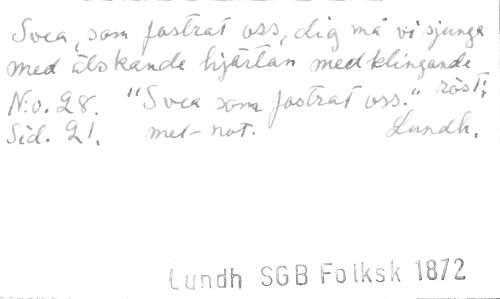 Svea, som fostrat oss, dig må vi sjunga
med älskande hjärtan med klingande
röst;
N:o. 28. "Svea som fostrat oss."
Sid. 21. med not. Lundh.
Lundh SGB Folksk 1872